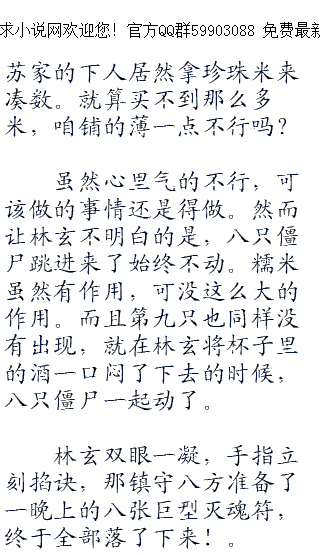 求小说网欢迎您！官方QQ群59903088 免费最新
苏家的下人居然拿珍珠米来
凑数。就算买不到那么多
米，咱铺的薄一点不行吗？
虽然心里气的不行，可
该做的事情还是得做。然而
让林玄不明白的是，八只僵
尸跳进来了始终不动。糯米
虽然有作用，可没这么大的
作用。而且第九只也同样没
有出现，就在林玄将杯子里
的酒一口闷了下去的时候，
八只僵尸一起动了。
林玄双眼一凝，手指立
刻掐诀，那镇守八方准备了
一晚上的八张巨型灭魂符，
终于全部落了下来！。